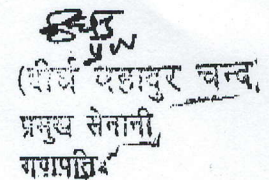 (दीर्घ बहादुर चन्द)
प्रमुख सेनानी
गणपति